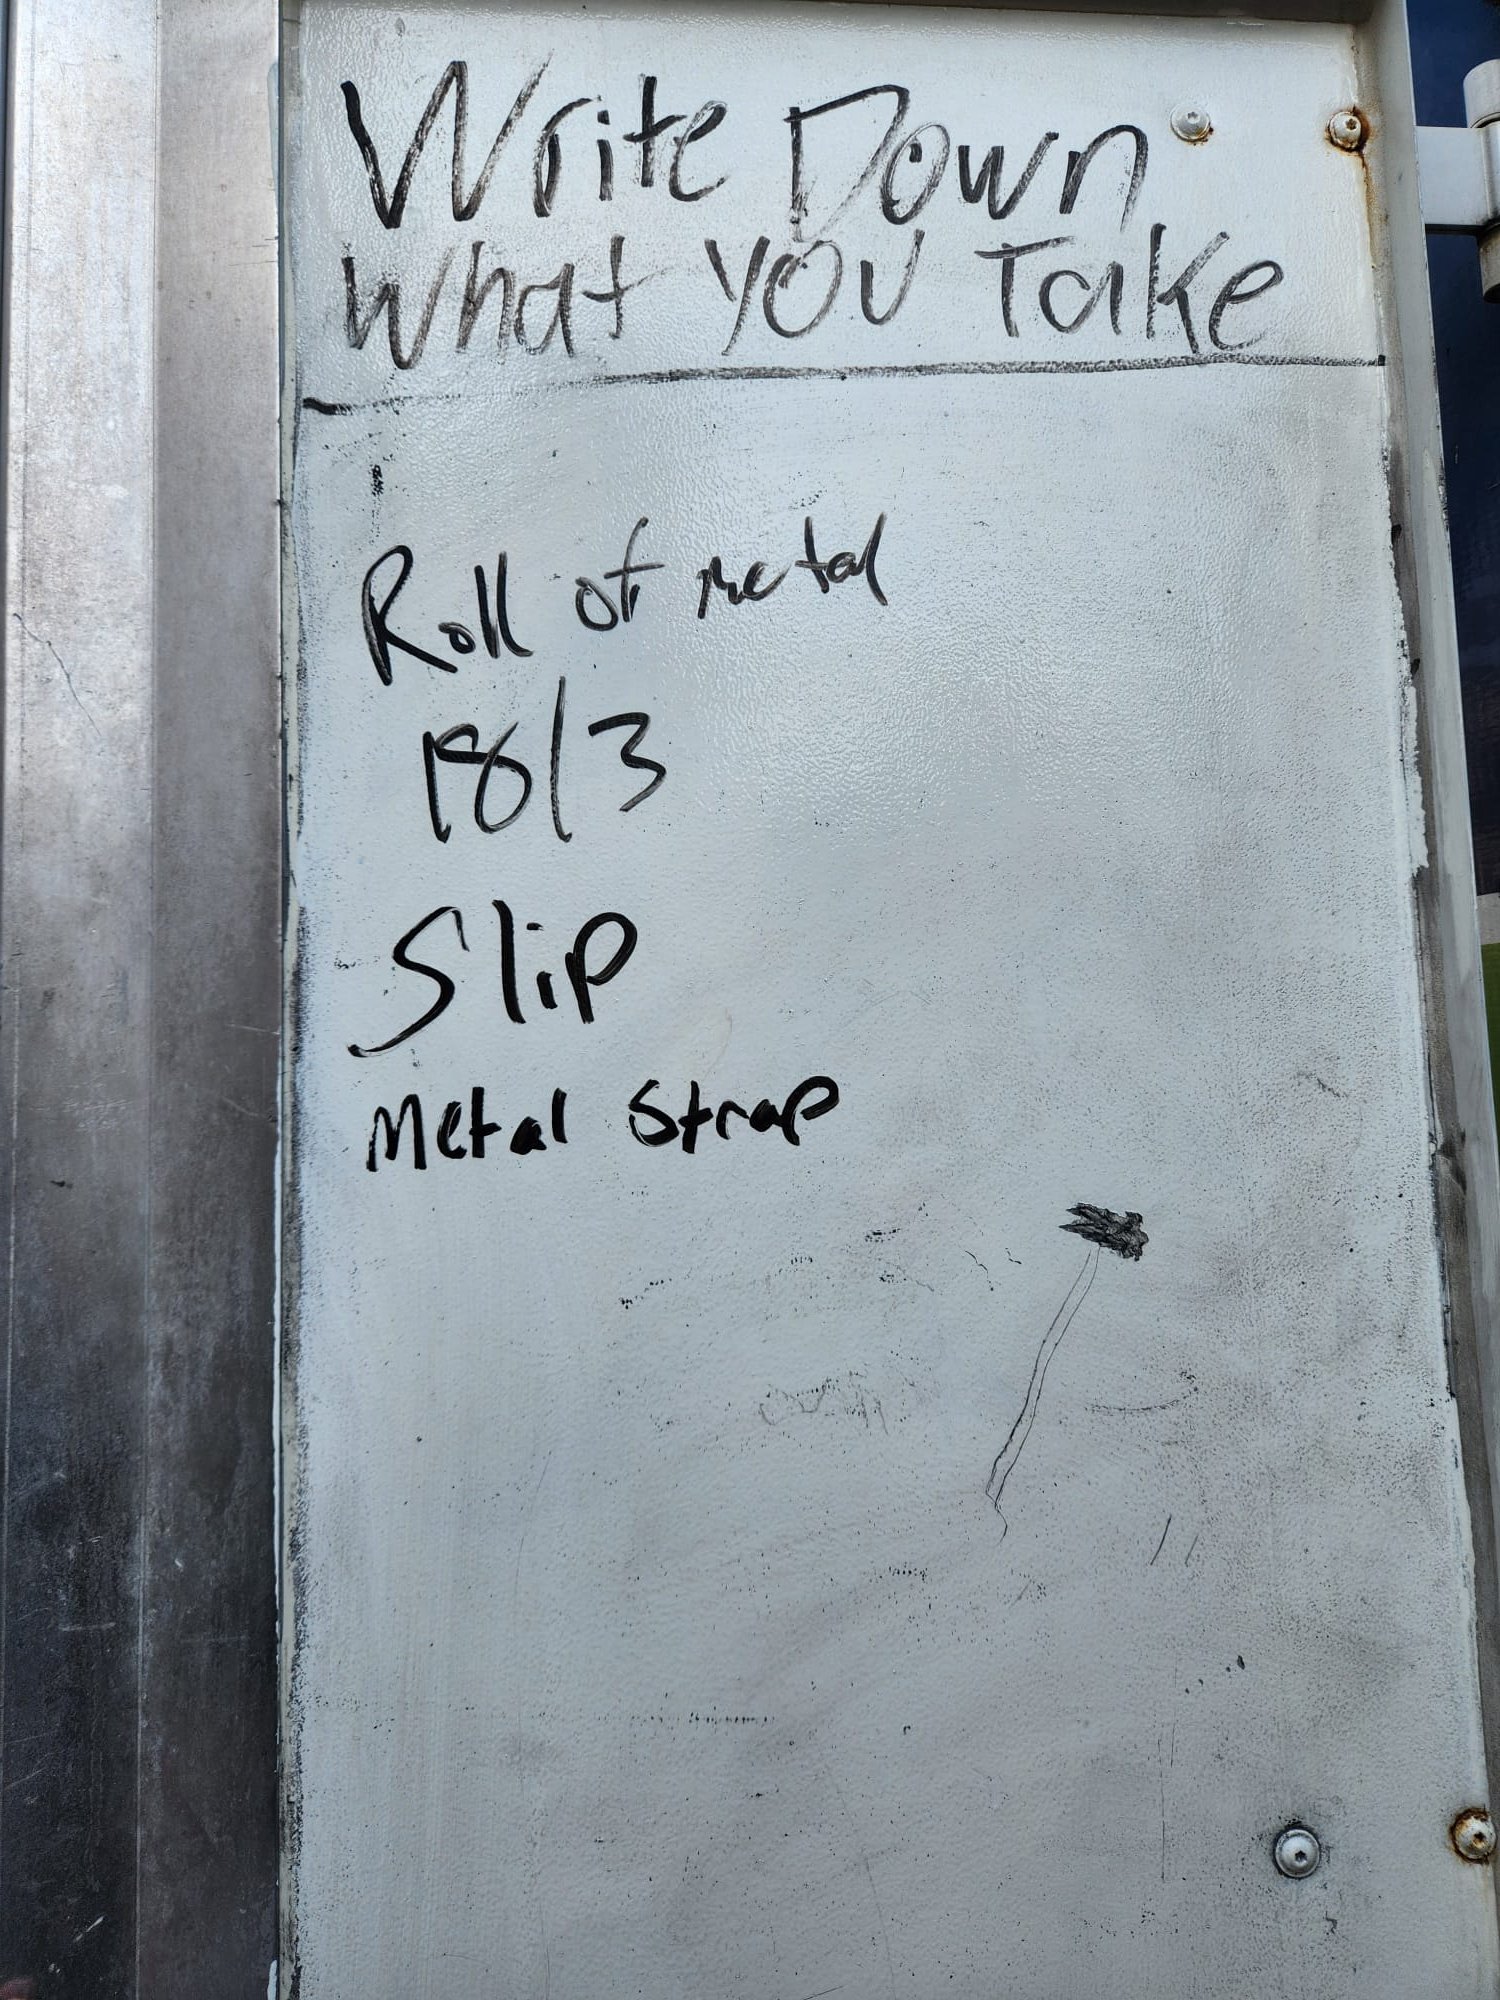 Write Down
What You Take
Roll of metal
18/3
Slip
Metal Strap